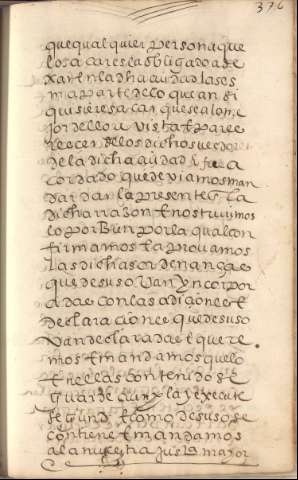 376
que qualquier persona que
lo sacare sea obligado a de
xar en la dha ciudad la ses
ma parte dello que an si
quisiere sacar que sea lo me
jor dello a vista E pare
scer de los dichos veedores
de la dicha ciudad E fue a
cordado que deviamos man
dar dar la presente En la
dicha razon E nos tuvimos
lo por Bien por la qual con
firmamos E aprovamos
las dichas ordenanças
que de suso Van Yncorpor
adas con las adiçiones E
declaraciones que de suso
Van declaradas E quere
mos E mandamos que lo
En ellas contenido se
guarde cunpla y Execute
Segund E como de suso se
contiene E mandamos
a la nuestra Justª mayor